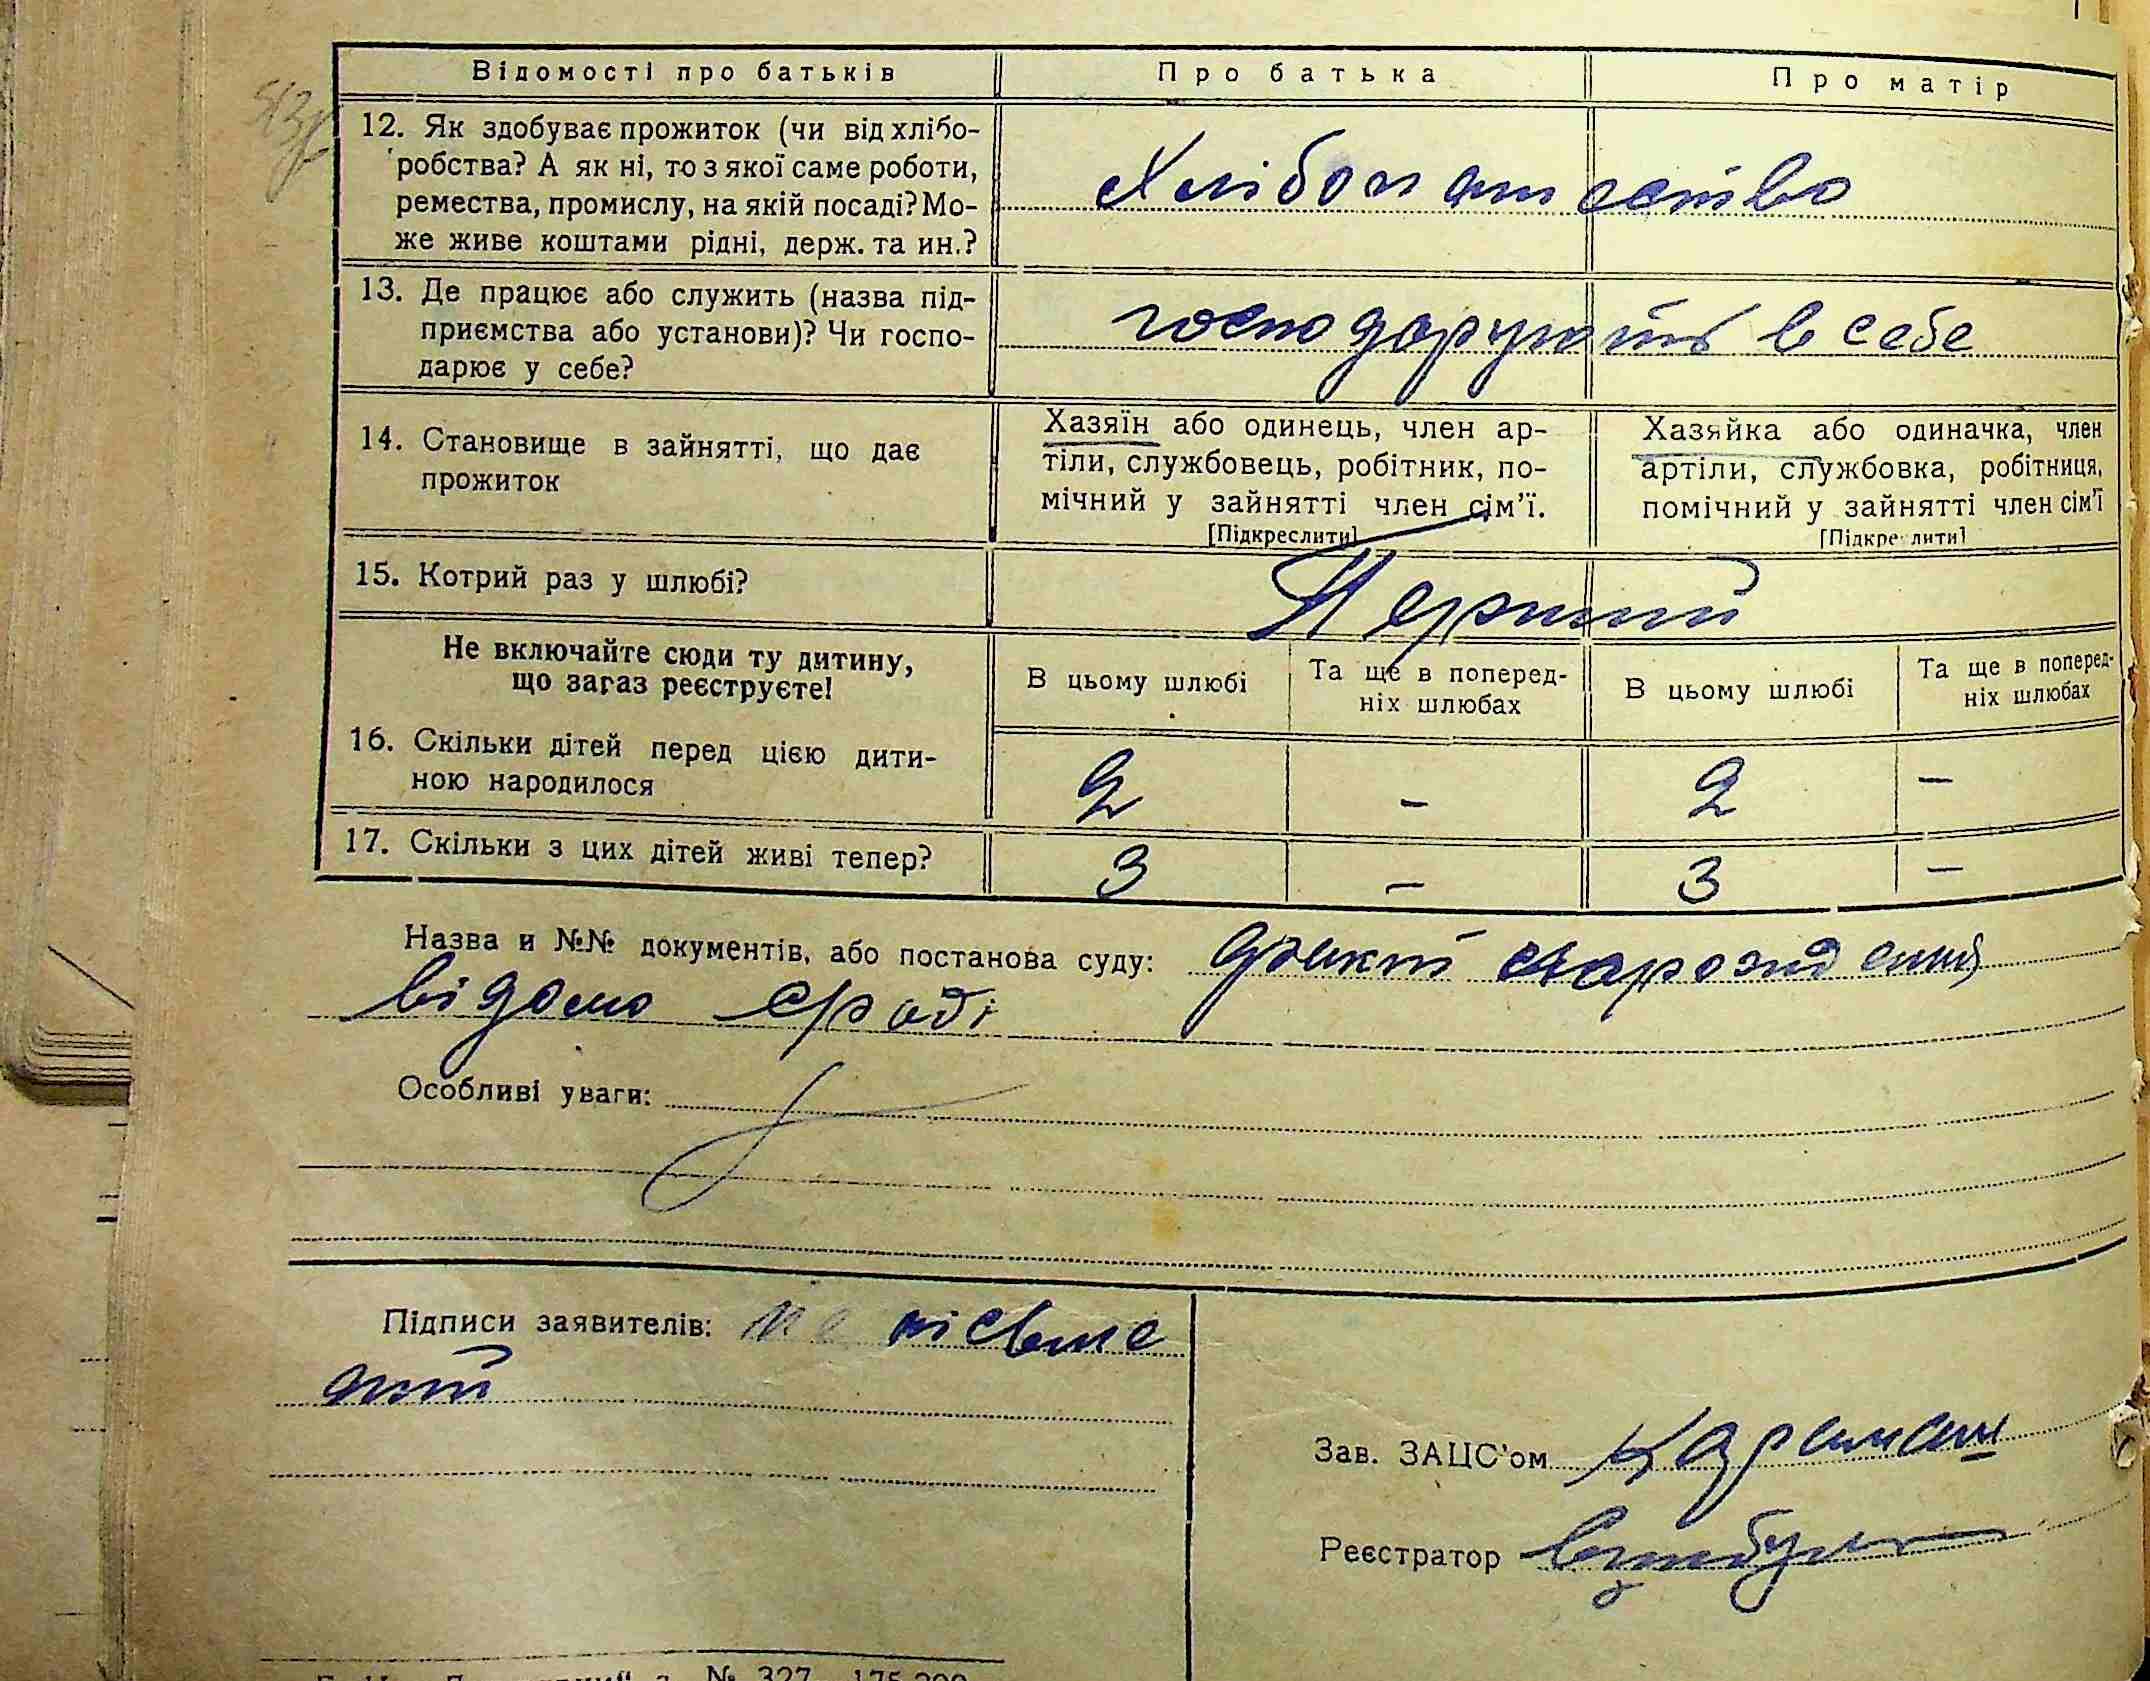 Відомості про батьків
Про батька
Про матір
12. Як здобуває прожиток (чи від хлібо-
робства? А як ні, то з якої саме роботи,
ремества, промислу, на якій посаді? Мо-
же живе коштами рідні, держ. та ин.?
Хлібопатство
13. Де працює або служить (назва під-
приємства або установи)? Чи госпо-
дарює у себе?
господарують в себе
14. Становище в зайнятті, що дає
прожиток
Хазяїн або одинець, член ар-
тіли, службовець, робітник, по-
мічний у зайнятті член сім'ї.
[Підкреслити]
Хазяйка або одиначка, член
артіли, службовка, робітниця,
помічний у зайнятті член сім'ї
[Підкреслити]
15. Котрий раз у шлюбі?
Перший
Не включайте сюди ту дитину,
що загаз реєструєте!
В цьому шлюбі
Та ще в поперед-
ніх шлюбах
В цьому шлюбі
Та ще в поперед-
ніх шлюбах
16. Скільки дітей перед цією дити-
ною народилося
2 – 2 –
17. Скільки з цих дітей живі тепер?
3 – 3 –
Назва и №№ документів, або постанова суду: факт
відомо сраді
Особливі уваги:
Підписи заявителів: не пісьме
ний
Зав. ЗАЦС'ом Караман
Реєстратор
№ 327 175.200